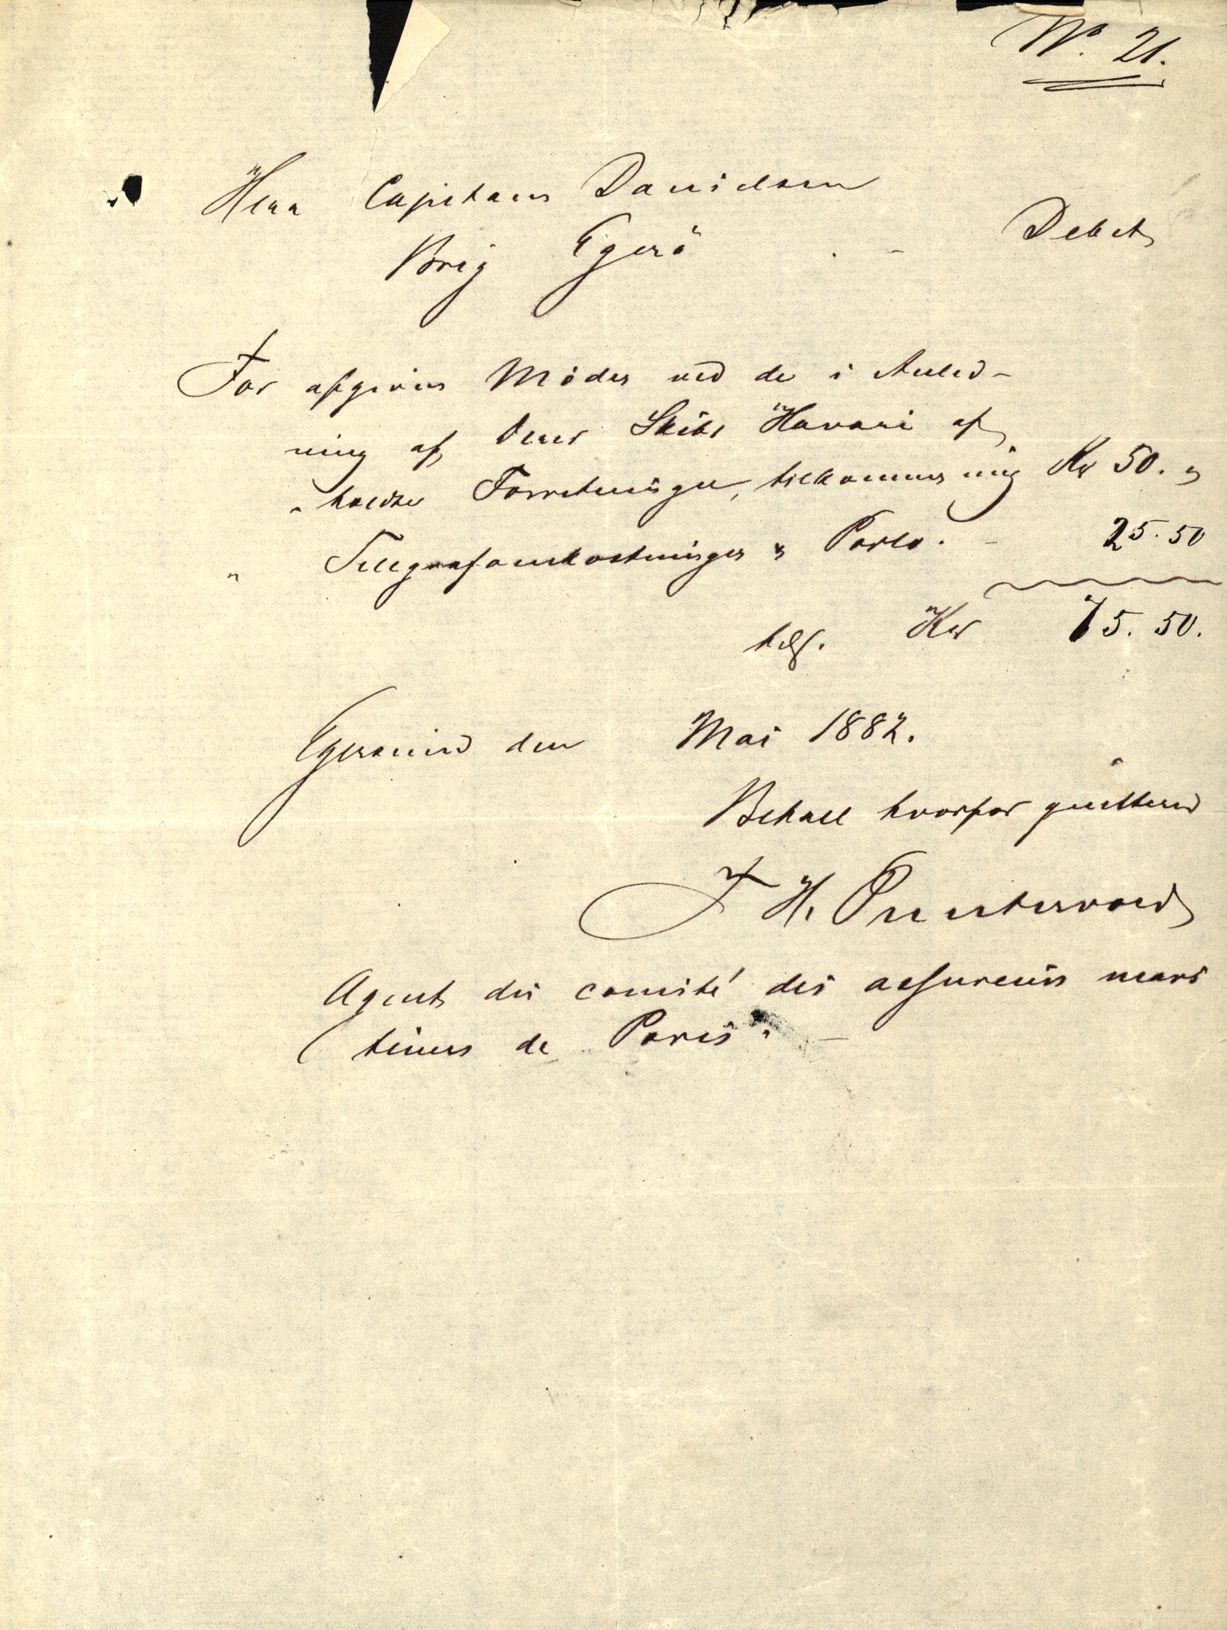 No. 21.
Herr Capitain Danielsen
Brig Egerö - Debet
For afgivne Möder ved de i Anled-
ning af Deres Skibs Havari af
holdte Forretninger, tilkommer mig Kr 50. "
" Telegrafomkostninger & Porto. - 25.50
Kr 75.50.
Egersund den Mai 1882.
Betalt hvorfor quitterer
F H.
Agent du comité des assureurs mari
times de Paris. -